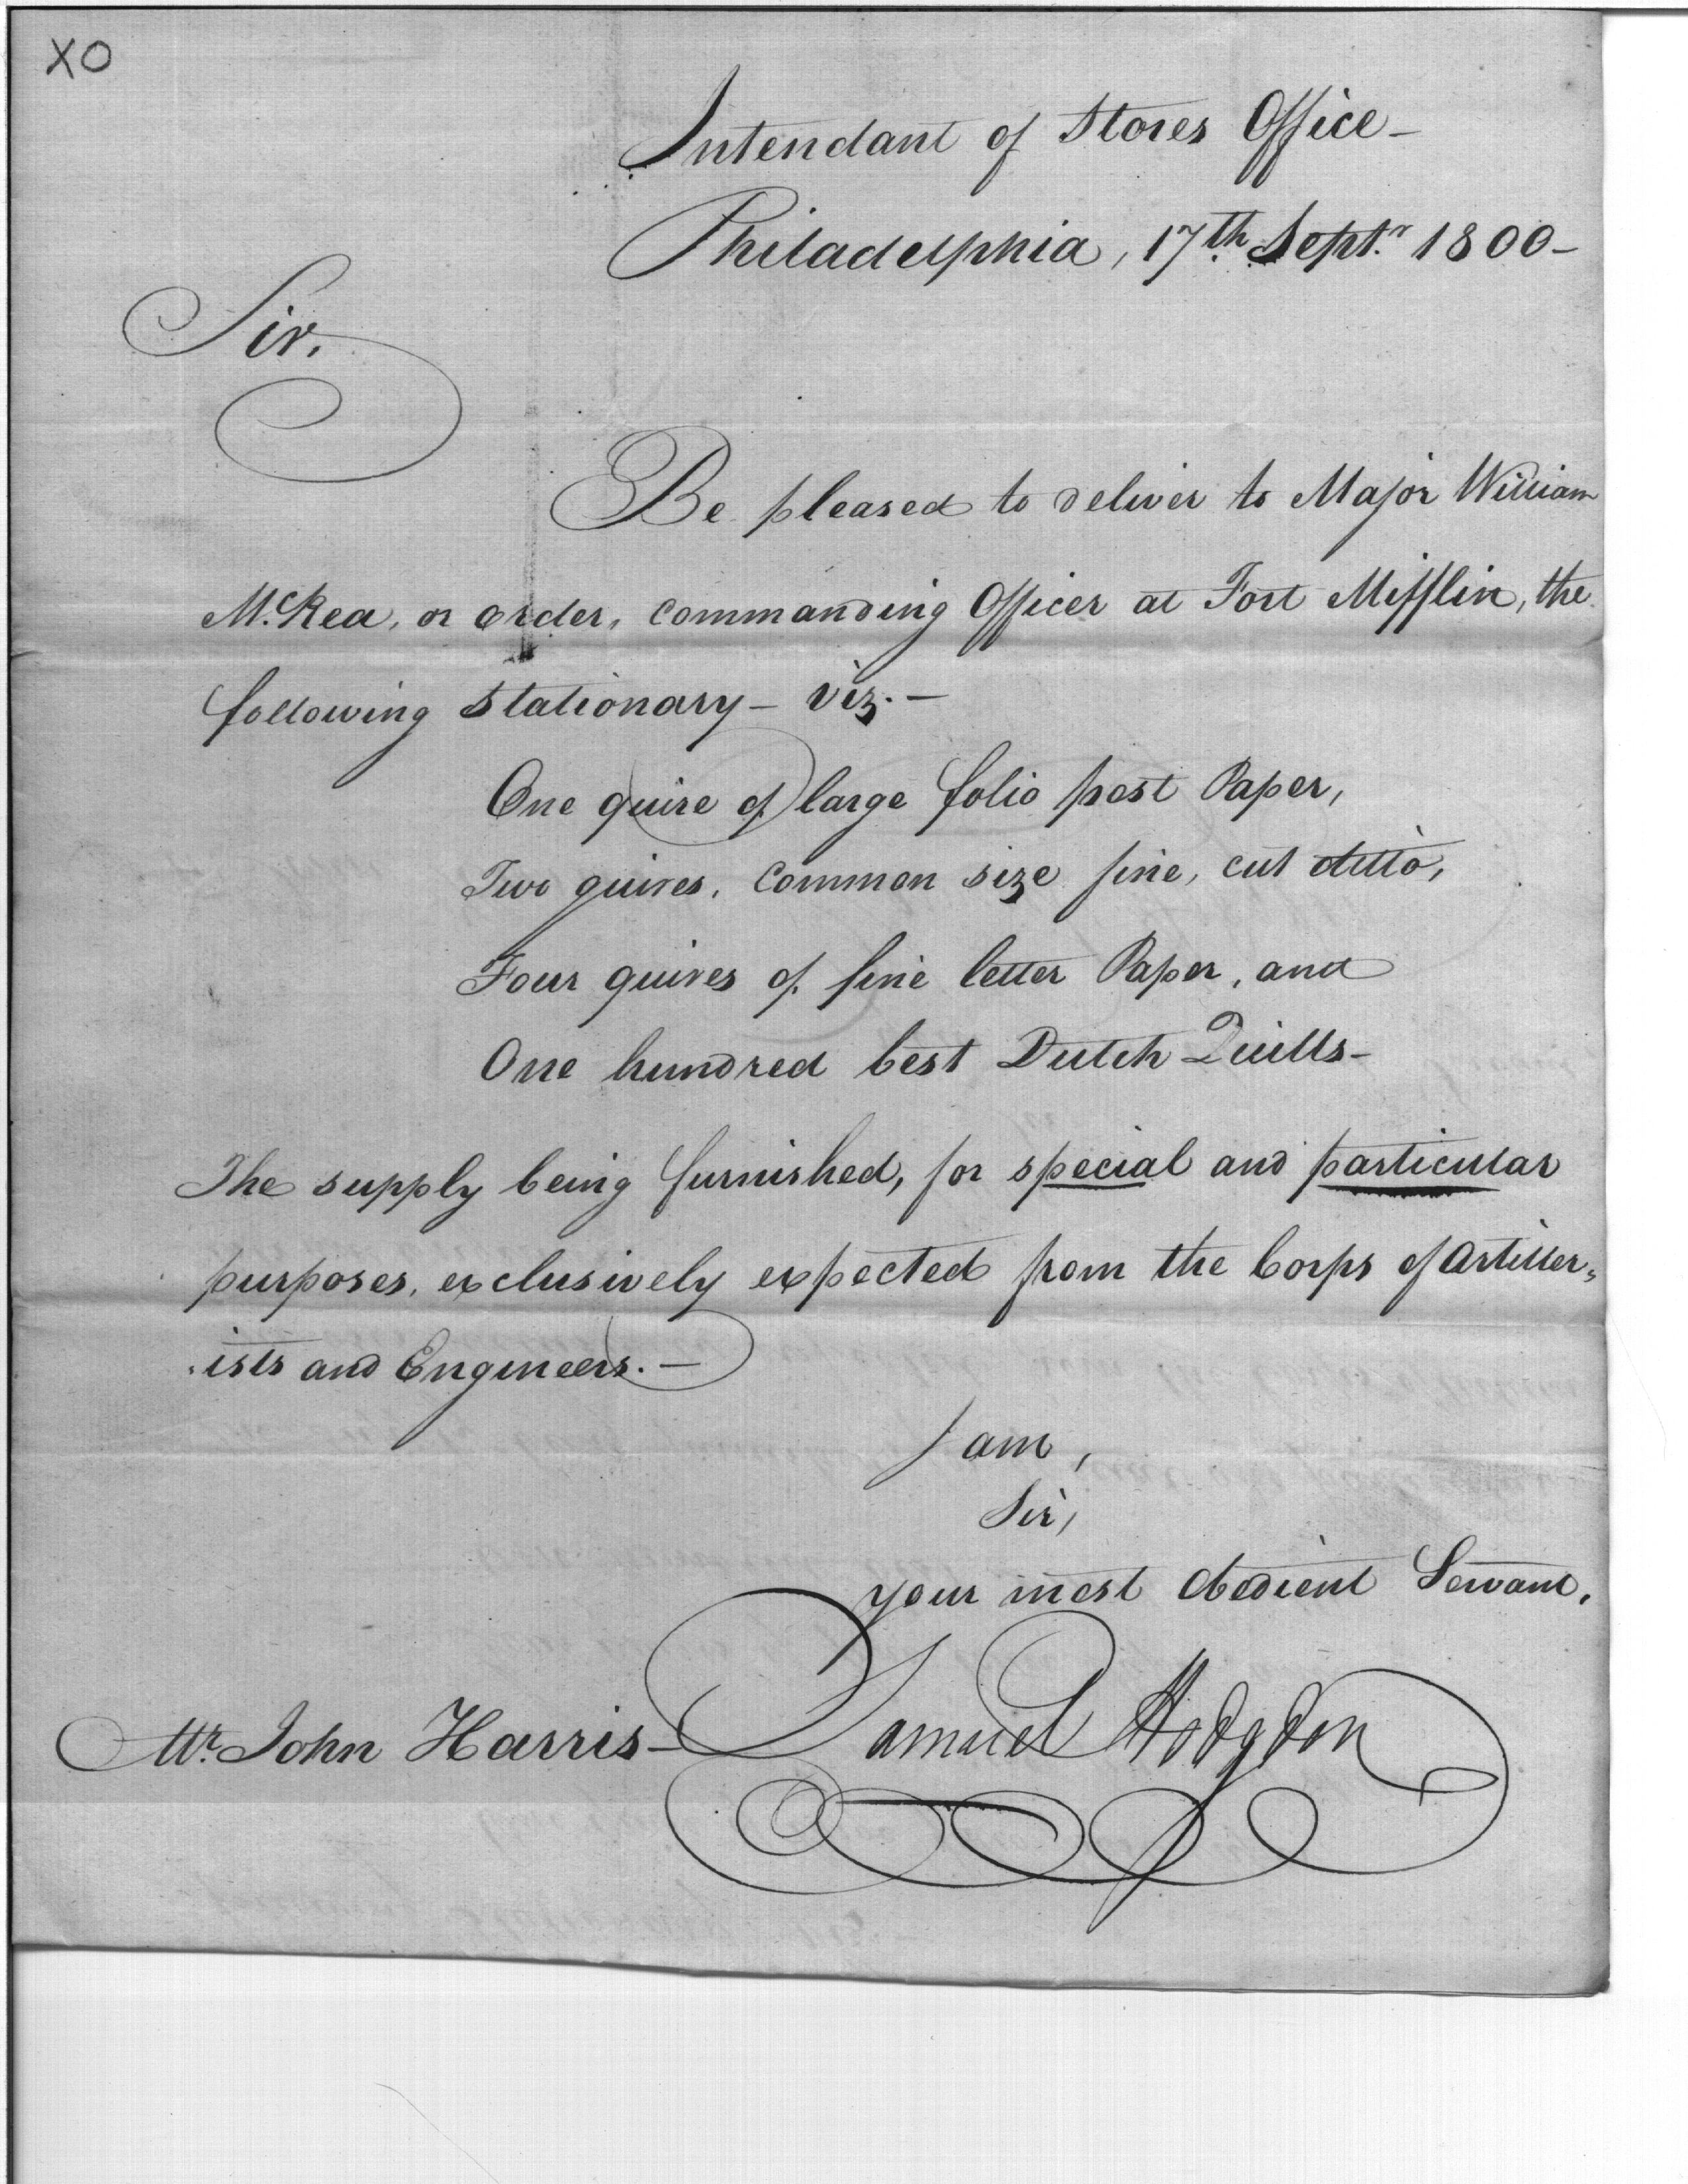 XO
Intendant of Stores Office—
Philadelphia, 17th. Septr. 1800—
Sir,
Be pleased to deliver to Major William
McRea, or order, commanding Officer at Fort Mifflin, the
following Stationary— viz.—
One quire of large folio post Paper,
Two quires, common size fine, cut ditto,
Four quires of fine letter Paper, and
One hundred best Dutch Quills—
The supply being furnished, for special and particular
purposes, exclusively expected from the Corps of Artiller=
ists and Engineers.—
I am,
Sir,
your most obedient Servant,
Samuel Hodgdon
Mr. John Harris—